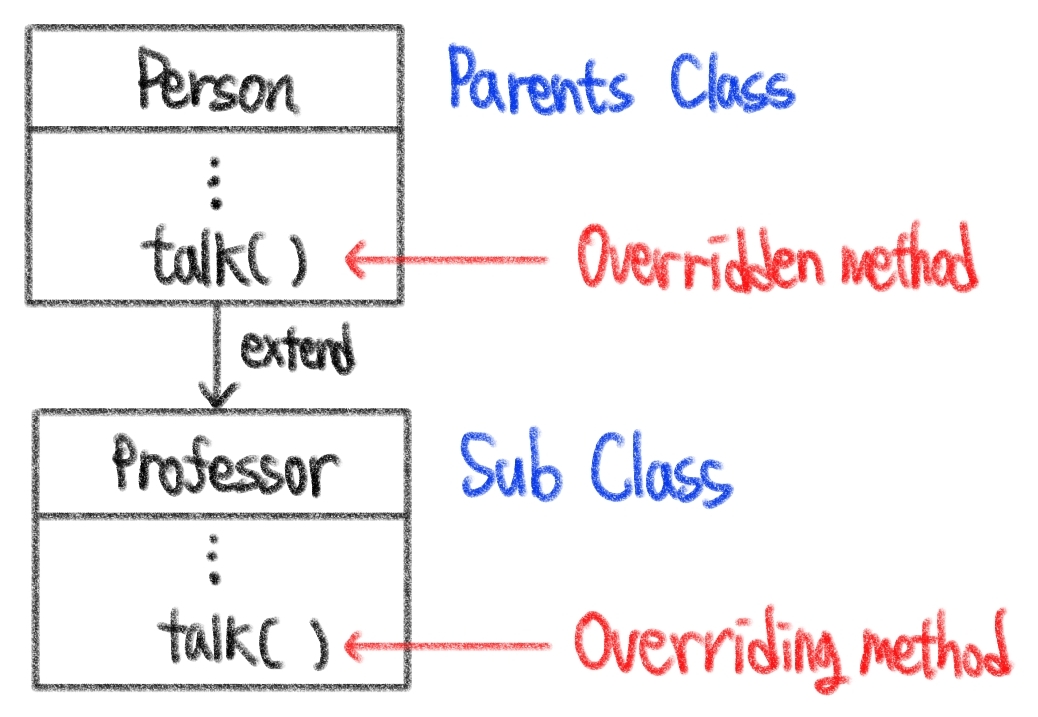 Person
Parents Class
talk( )
Overridden method
extend
Professor
Sub Class
talk( )
Overriding method